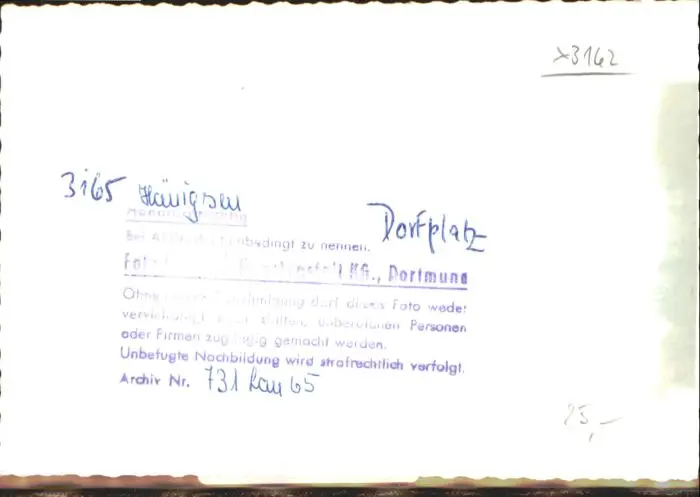 x3162
3165 Hänigsen
Dorfplatz
Bei Abdruck unbedingt zu nennen.
KG., Dortmund
Ohne Foto weder
Personen
oder Firmen zugängig gemacht werden.
Unbefugte Nachbildung wird strafrechtlich verfolgt.
Archiv Nr. 731 Lau 65
25,-